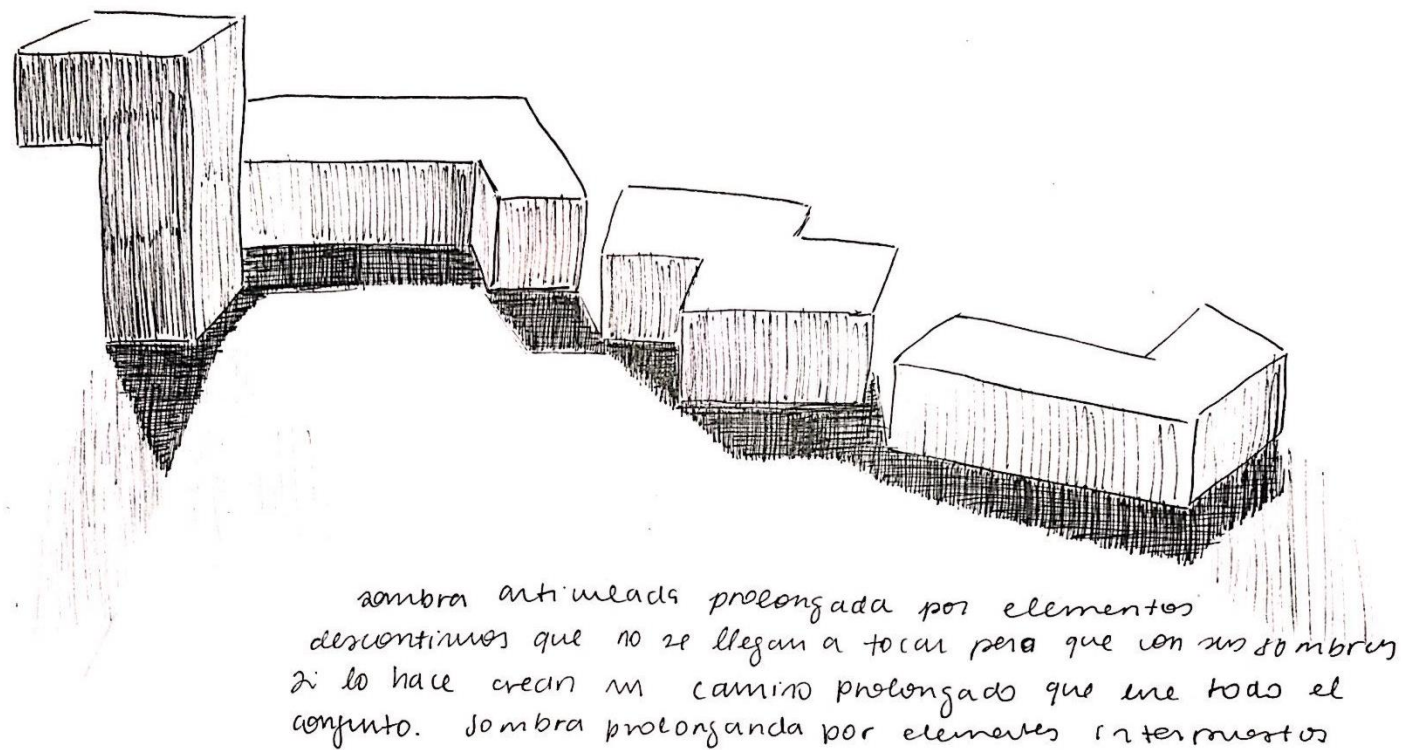 sombra articulada prolongada por elementos
descontinuos que no se llegan a tocar pero que con sus sombras
si lo hace crean un camino prolongado que une todo el
conjunto. Sombra prolonganda por elementos interpuestos